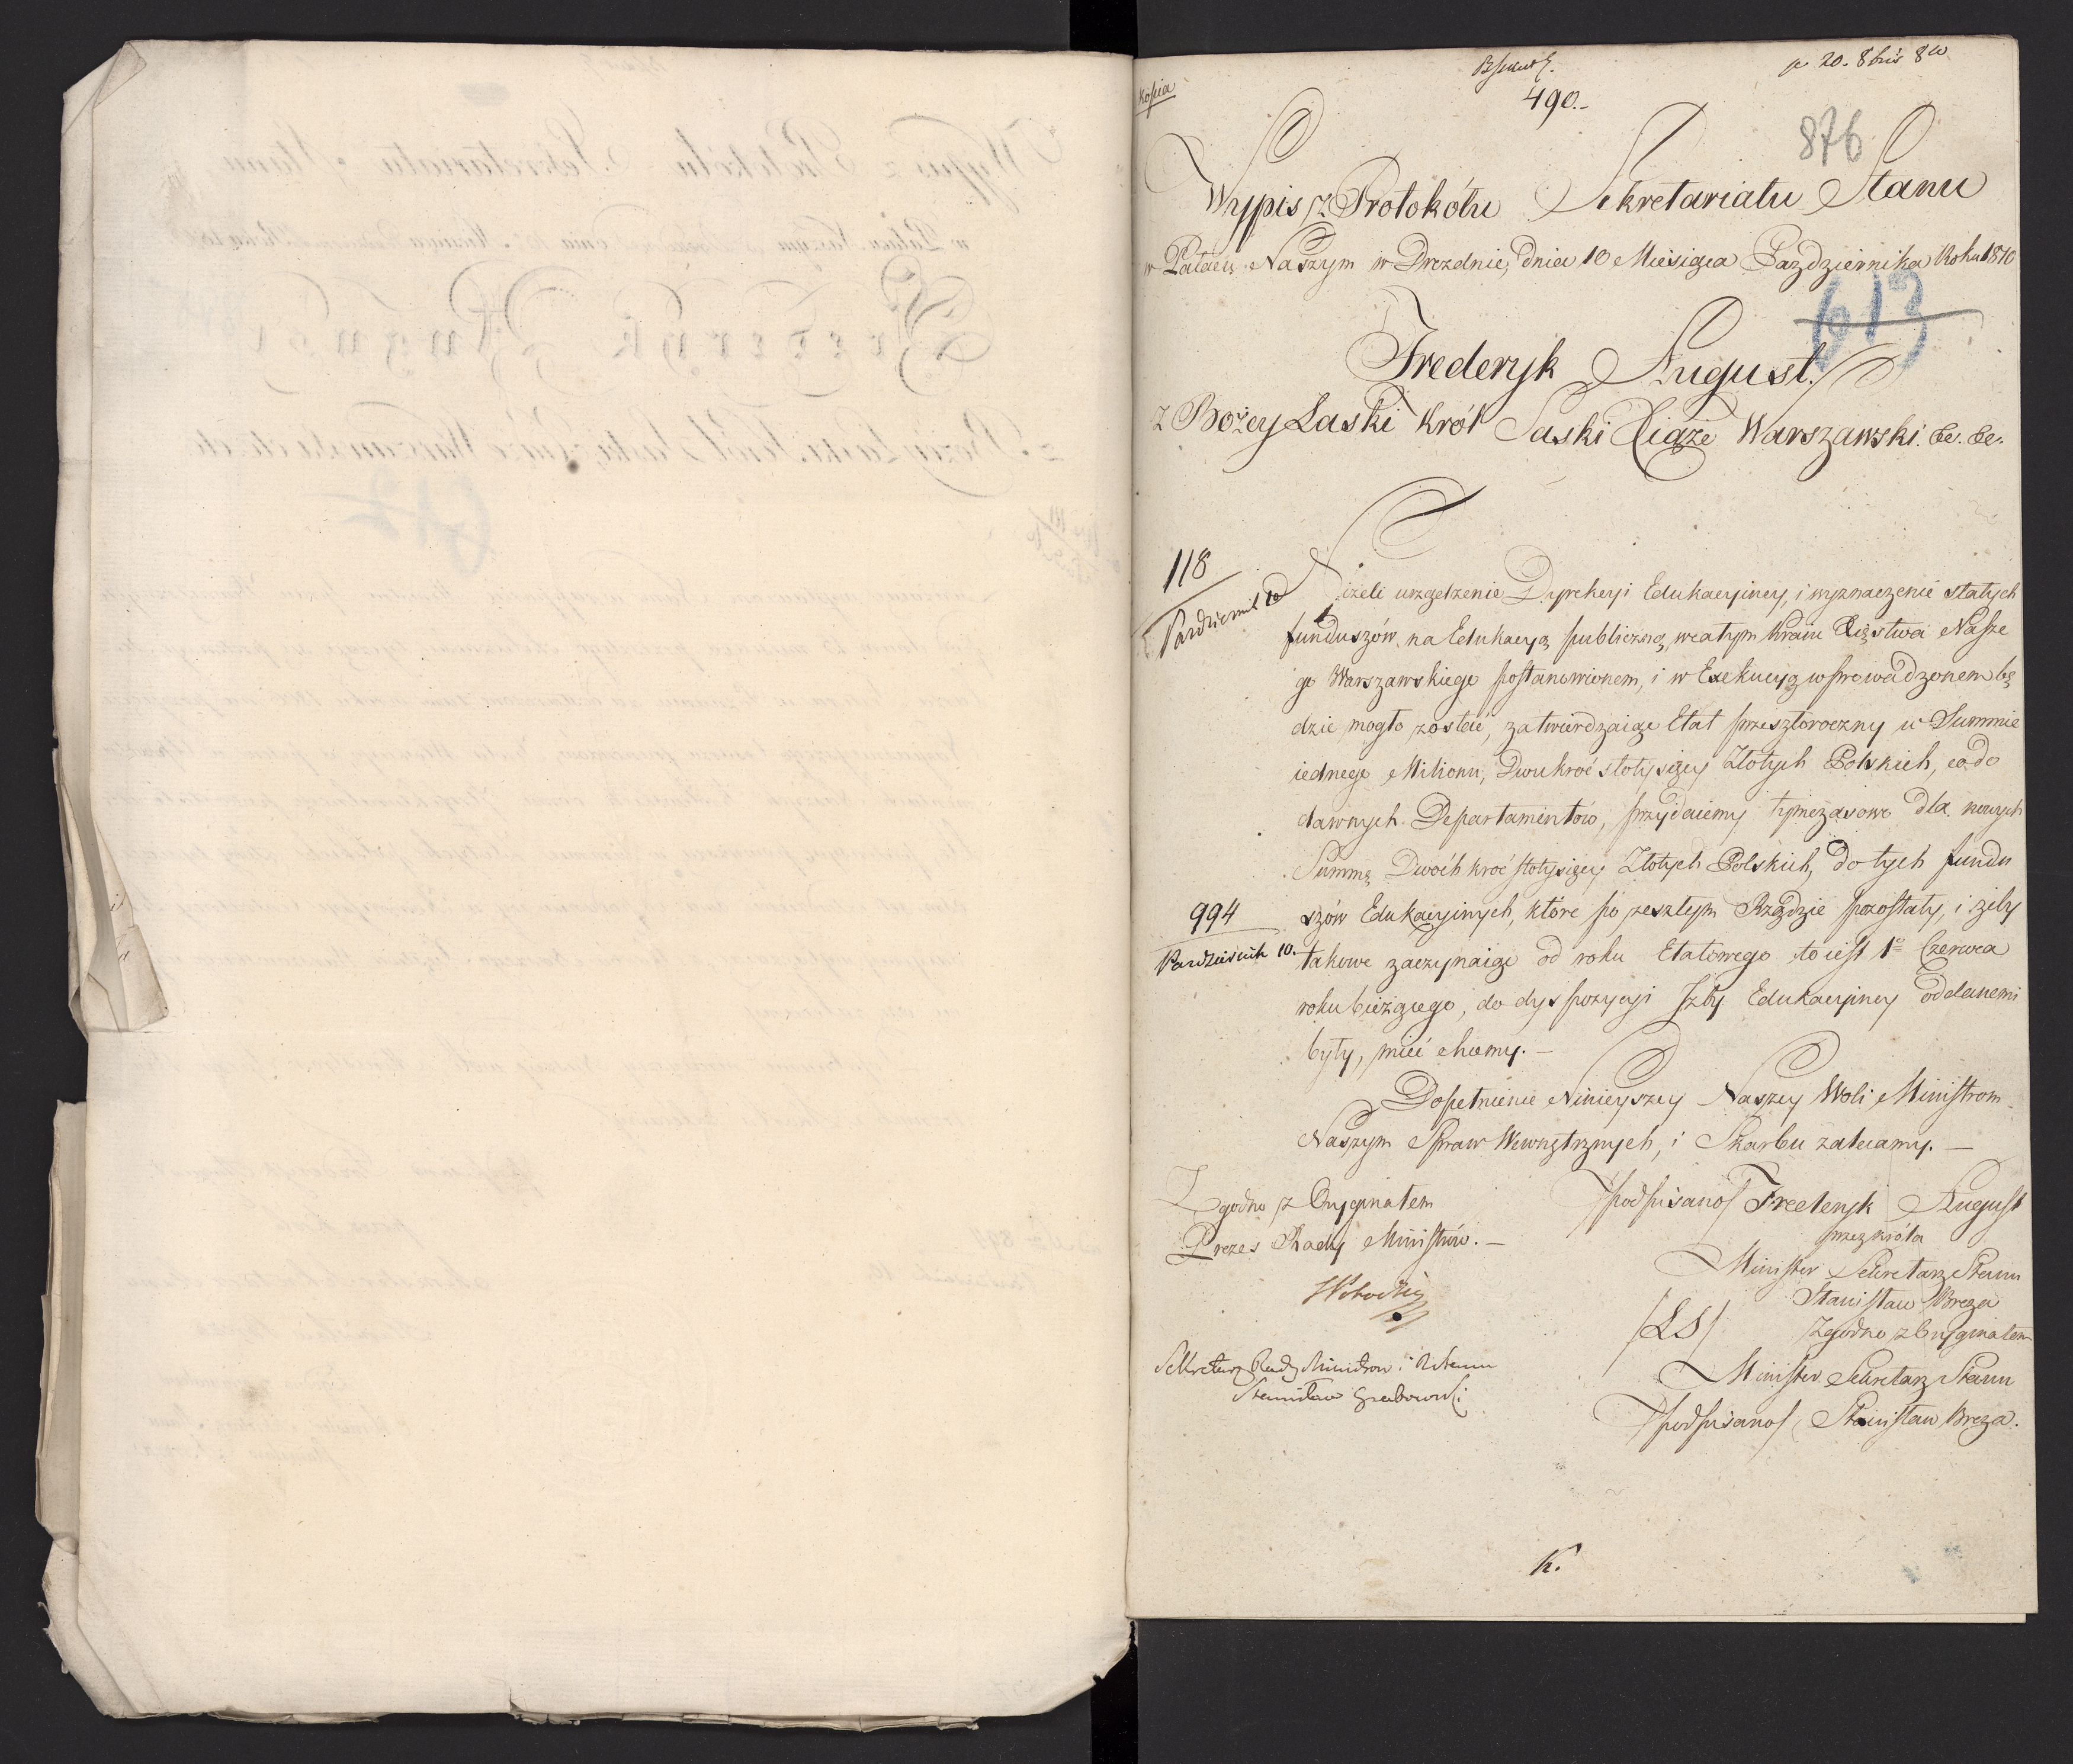 Kopia
490.-
p 20. 8bris 810
876
Wypis z Protokółu Sekretariatu Stanu
w Pałacu Naszym w Dreznie, dnia 10 Miesiąca Pazdziernika Roku 1810
613
Frederyk August.
z Bożey Łaski Król Saski Xiąże Warszawski. &c. &c.
118
Pazdziernik 10
Niżeli urządzenie Dyrekcyi Edukacyiney, i wyznaczenie stałych
funduszów na Edukacyą publiczną, w całym Kraiu Xięstwa Nasze
go Warszawskiego postanowionem, i w Exekucyą wprowadzonem bę
dzie mogło zostać, zatwierdzaiąc Etat przeszłoroczny w Summie
iednego Milionu, Dwukroć stotysięcy Złotych Polskich, co do
dawnych Departamentów, przydaiemy tymczasowo dla nowych
Summę Dwóch kroć stotysięcy Złotych Polskich, do tych fundu
994
szów Edukacyinych, które po zeszłym Rządzie pozostały, i żeby
Pazdziernik 10.
takowe zaczynaiąc od roku Etatowego to iest 1o Czerwca
roku bieżącego, do dyspozycyi Izby Edukacyiney oddanemi
były, mieć chcemy. —
Dopełnienie Ninieyszey Naszey Woli Ministrom
Naszym Spraw Wewnętrznych, i Skarbu zalecamy. —
Zgodno z Oryginałem
/podpisano/ Frederyk August
Prezes Rady Ministrów. —
przez Króla
Minister Sekretarz Stanu
Stanisław Breza
/LS/
Zgodno z Oryginałem
Sekretarz Rady Ministrow i R Stanu
Minister Sekretarz Stanu
Stanisław Grabowski
/podpisano/ Stanisław Breza.
K.